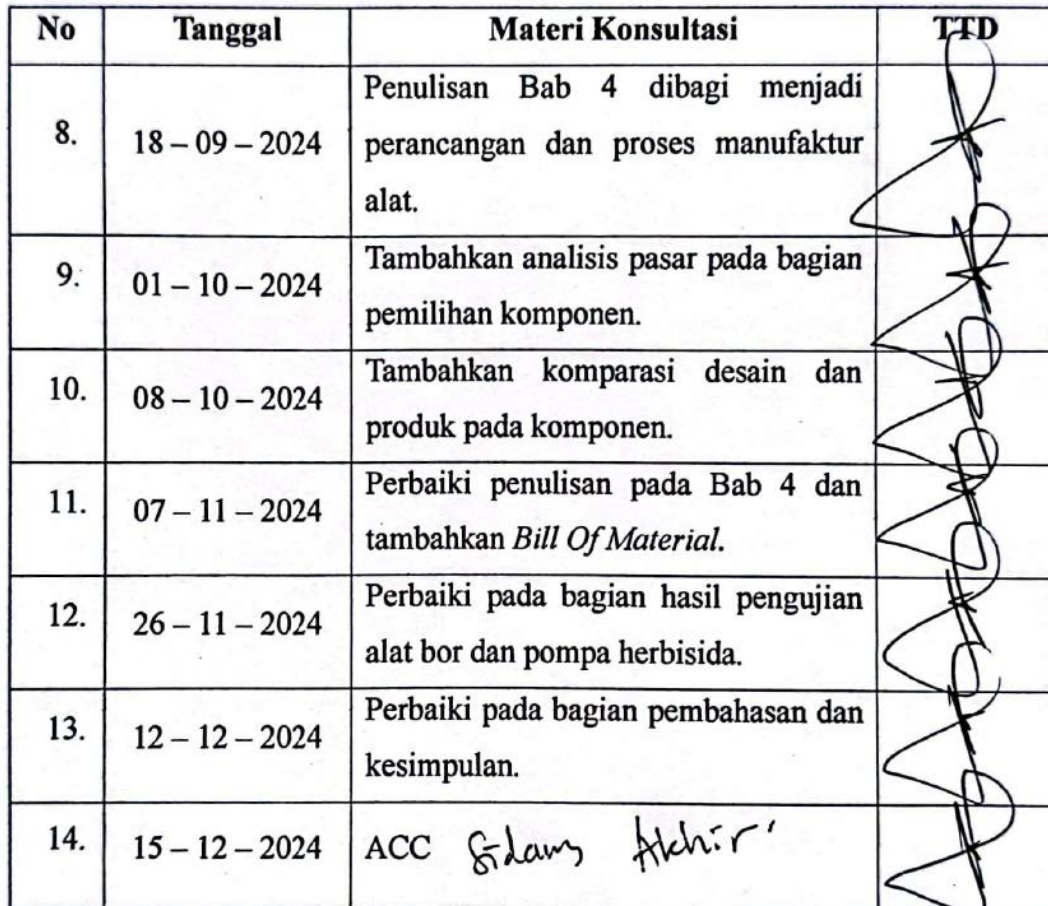 No Tanggal Materi Konsultasi TTD
Penulisan Bab 4 dibagi menjadi
8. 18 – 09 – 2024 perancangan dan proses manufaktur
alat.
9. 01 – 10 – 2024 Tambahkan analisis pasar pada bagian
pemilihan komponen.
10. 08 – 10 – 2024 Tambahkan komparasi desain dan
produk pada komponen.
11. 07 – 11 – 2024 Perbaiki penulisan pada Bab 4 dan
tambahkan Bill Of Material.
12. 26 – 11 – 2024 Perbaiki pada bagian hasil pengujian
alat bor dan pompa herbisida.
13. 12 – 12 – 2024 Perbaiki pada bagian pembahasan dan
kesimpulan.
14. 15 – 12 – 2024 ACC Sidang Akhir